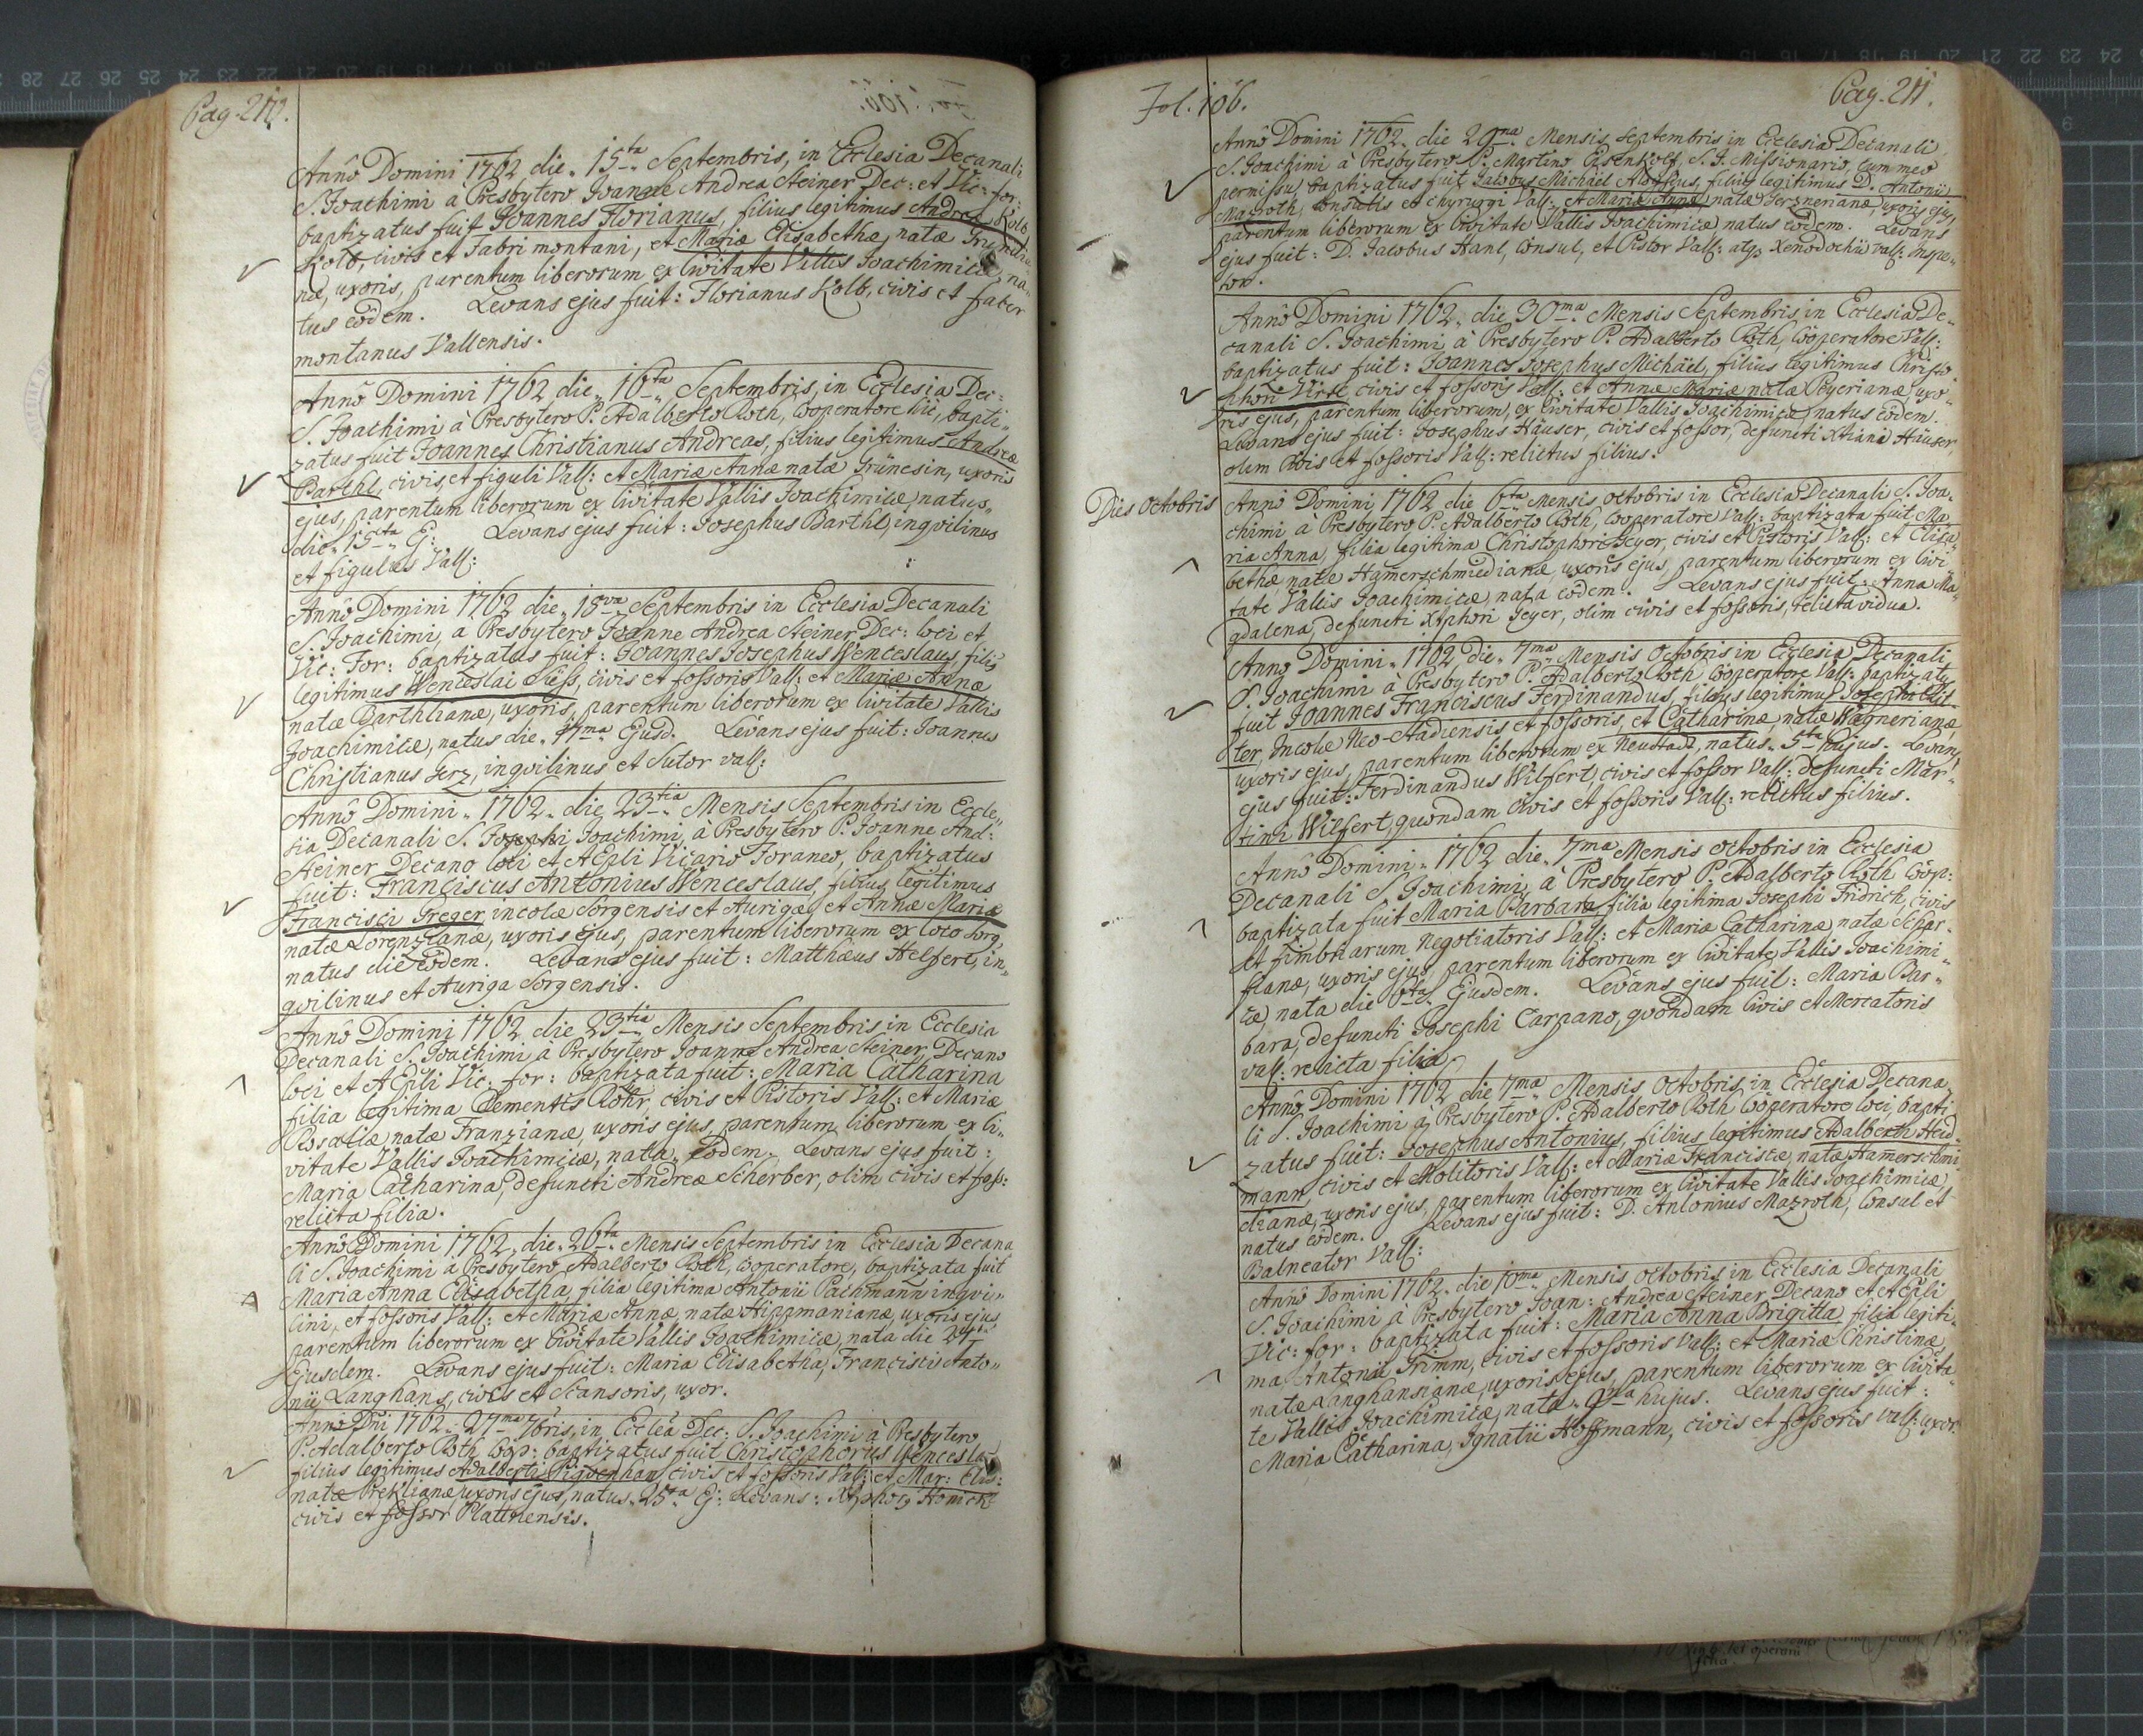 Pag. 210.
Anno Domini 1762 die 15ta Septembris, in Ecclesia Decanali
S. Joachimi à Presbytero Joanne Andrea Steiner Dec: et Vic: for:
baptizatus fuit Joannes Florianus, filius legitimus Andreæ Kolb
Kolb, civis et Fabri montani, et Mariæ Elisabethæ, natæ
næ, uxoris, parentum liberorum ex Civitate Vallis Joachimicæ, na-
tus eodem. Levans ejus fuit: Florianus Kolb, civis et faber
montanus Vallensis.
Anno Domini 1762 die 16ta Septembris, in Ecclesia Dec:
S. Joachimi à Presbytero P. Adalberto Roth, Cooperatore hic, bapti-
zatus fuit Joannes Christianus Andreas, filius legitimus Andreæ
Barthl, civis et figuli Vall: et Mariæ Annæ natæ Grünesin, uxoris
ejus, parentum liberorum ex Civitate Vallis Joachimicæ, natus
die 15ta Ej: Levans ejus fuit: Josephus Barthl, inqvilinus
et figulus Vall:
Anno Domini 1762 die 18va Septembris in Ecclesia Decanali
S. Joachimi, a Presbytero Joanne Andrea Steiner Dec: loci et
Vic: For: baptizatus fuit: Joannes Josephus Wenceslaus, filius
legitimus Wenceslai civis et fossoris Vall: et Mariæ Annæ
natæ Barthlianæ, uxoris, parentum liberorum ex Civitate Vallis
Joachimicæ, natus die 17ma Ejusd. Levans ejus fuit: Joannes
Christianus Gerz, inqvilinus et Sutor vall:
Anno Domini 1762 die 23tia Mensis Septembris in Eccle-
sia Decanali S. Josephi Joachimi, à Presbytero P. Joanne And:
Steiner Decano loci et AEpli Vicario Foraneo, baptizatus
fuit: Franciscus Antonius Wenceslaus, filius legitimus
Francisci Greger, incolæ Sorgensis et Aurigæ, et Annæ Mariæ
natæ Lorenzianæ, uxoris ejus, parentum liberorum ex loco Sorg,
natus die eodem. Levans ejus fuit: Matthæus Helfert, in-
qvilinus et Auriga Sorgensis.
Anno Domini 1762 die 23tia Mensis Septembris in Ecclesia
Decanali S. Joachimi à Presbytero Joanne Andrea Steiner, Decano
loci et AEpli Vic: for: baptizata fuit: Maria Catharina
filia legitima Clementis Röhr, civis et Pistoris Vall: et Mariæ
Rosaliæ natæ Franzianæ, uxoris ejus, parentum liberorum ex Ci-
vitate Vallis Joachimicæ, nata eodem. Levans ejus fuit:
Maria Catharina, defuncti Andreæ Scherber, olim civis et foss:
relicta filia.
Anno Domini 1762 die 26ta Mensis Septembris in Ecclesia Decana
li S. Joachimi à Presbytero Adalberto Roth, Cooperatore, baptizata fuit
Maria Anna Elisabetha, filia legitima Antonii Pachmann inqvi-
lini, et fossoris Vall: et Mariæ Annæ, natæ Hippmanianæ, uxoris ejus,
parentum liberorum ex Civitate Vallis Joachimicæ, nata die 24ta
Ejusdem. Levans ejus fuit: Maria Elisabetha, Francisci Anto-
nii Langhans, civis et Scansoris, uxor.
Anno Dni 1762 27ma 7bris, in Ecclea Dec: S. Joachimi à Presbytero
P. Adalberto Roth Coop: baptizatus fuit Christophorus Wenceslaus
filius legitimus Adalberti civis et fossoris Vall: et Mar: Elis:
natæ uxoris ejus, natus 25ta Ej: Levans: Xtphorus
civis et fossor Plattnensis.
Fol. 106.
Pag. 211.
Anno Domini 1762 die 29na Mensis Septembris in Ecclesia Decanali
S. Joachimi à Presbytero P. Martino S. J. Missionario, cum meo
permissu baptizatus fuit Jacobus Michael Aloysius, filius legitimus D. Antonii
Mazroth, Consulis et chyrurgi Vall: et Mariæ Annæ, natæ uxoris ejus,
parentum liberorum ex Civitate Vallis Joachimicæ natus eodem. Levans
ejus fuit: D. Jacobus Hanl, Consul, et Pistor Vall: atqz Xenodochii vall: inspe-
tor.
Anno Domini 1762 die 30ma Mensis Septembris, in Ecclesia De-
canali S. Joachimi, à Presbytero P. Adalberto Roth, Cooperatore Vall:
baptizatus fuit: Joannes Josephus Michäel, filius legitimus Christo
phori Virte, civis et fossoris Vall: et Annæ Mariæ natæ Peyerianæ, uxo-
ris ejus, parentum liberorum, ex Civitate Vallis Joachimicæ, natus eodem.
Levans ejus fuit: Josephus Häuser, civis et fossor, defuncti Xtiani Häuser,
olim Civis et fossoris Vall: relictus filius.
Dies Octobris
Anno Domini 1762 die 6ta Mensis Octobris in Ecclesia Decanali S. Joa-
chimi à Presbytero P. Adalberto Roth, Cooperatore Vall: baptizata fuit Ma-
ria Anna, filia legitima Christophori Geyer, civis et Pistoris Vall: et Elisa-
bethæ, natæ Hamerschmiedianæ, uxoris ejus, parentum liberorum ex Civi-
tate Vallis Joachimicæ, nata eodem. Levans ejus fuit: Anna Ma-
gdalena, defuncti Xtphori Geyer, olim civis et fossoris, relicta vidua.
Anno Domini 1762 Die 7ma Mensis Octobris in Ecclesia Decanali
S. Joachimi à Presbytero P. Adalberto Roth Cooperatore Vall: baptizatus
fuit Joannes Franciscus Ferdinandus, filius legitimus Josephi
ter, Incolæ Neo-Stadiensis, et fossoris, et Catharinæ, natæ Wagnerianæ,
uxoris ejus, parentum liberorum ex Neustadt, natus 5ta hujus. Levans
ejus fuit: Ferdinandus Wilfert, civis et fossor Vall: defuncti Mar-
tini Wilfert, quondam civis et fossoris Vall: relictus filius.
Anno Domini 1762 die 7ma Mensis Octobris in Ecclesia
Decanali S. Joachimi, à Presbytero P. Adalberto Roth Coop:
baptizata fuit Maria Barbara filia legitima Josephi Fridrich, civis
et fimbriarum negotiatoris Vall: et Mariæ Catharinæ, natæ Schar-
fianæ, uxoris ejus, parentum liberorum ex Civitate Vallis Joachimi-
cæ, nata die 6ta Ejusdem. Levans ejus fuit: Maria Bar-
bara, defuncti Josephi Carpano, qvondam Civis et Mercatoris
vall: relicta filia.
Anno Domini 1762 die 7ma Mensis Octobris, in Ecclesia Decana
li S. Joachimi à Presbytero P. Adalberto Roth Cooperatore loci, bapti
zatus fuit: Josephus Antonius, filius legitimus Adalberti Heid-
mann, civis et Molitoris Vall: et Mariæ Franciscæ, natæ Hamerschmi
dianæ, uxoris ejus, parentum liberorum ex Civitate Vallis Joachimicæ,
natus eodem. Levans ejus fuit: D. Antonius Mazroth, Consul et
Balneator Vall:
Anno Domini 1762 die 10ma Mensis Octobris, in Ecclesia Decanali
S. Joachimi à Presbytero Joan: Andrea Steiner Decano et AEpli
Vic: for: baptizata fuit: Maria Anna Brigitta, filia legiti-
ma Antonii Grimm, civis et fossoris Vall: et Mariæ Christinæ
natæ Langhansianæ, uxoris ejus, parentum liberorum ex Civita-
te Vallis Joachimicæ, nata 9na hujus. Levans ejus fuit:
Maria Catharina, Ignatii Hoffmann, civis et fossoris Vall: uxor.